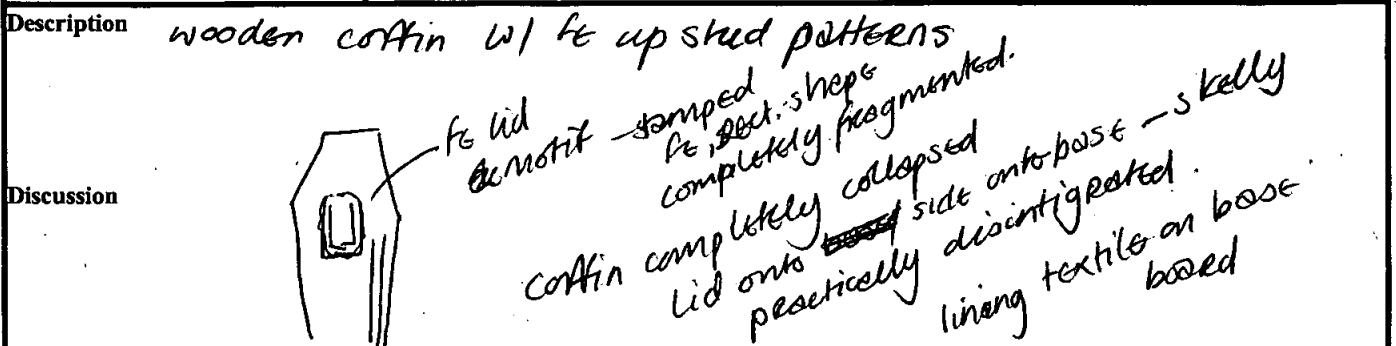 Description wooden coffin w/ fe up stud patterns
fe lid
motif - stamped
fe, rect. shape
completely fragmented.
Discussion
coffin completely collapsed
Lid onto side onto base - skelly
practically disintigrated.
lining textile on base
board